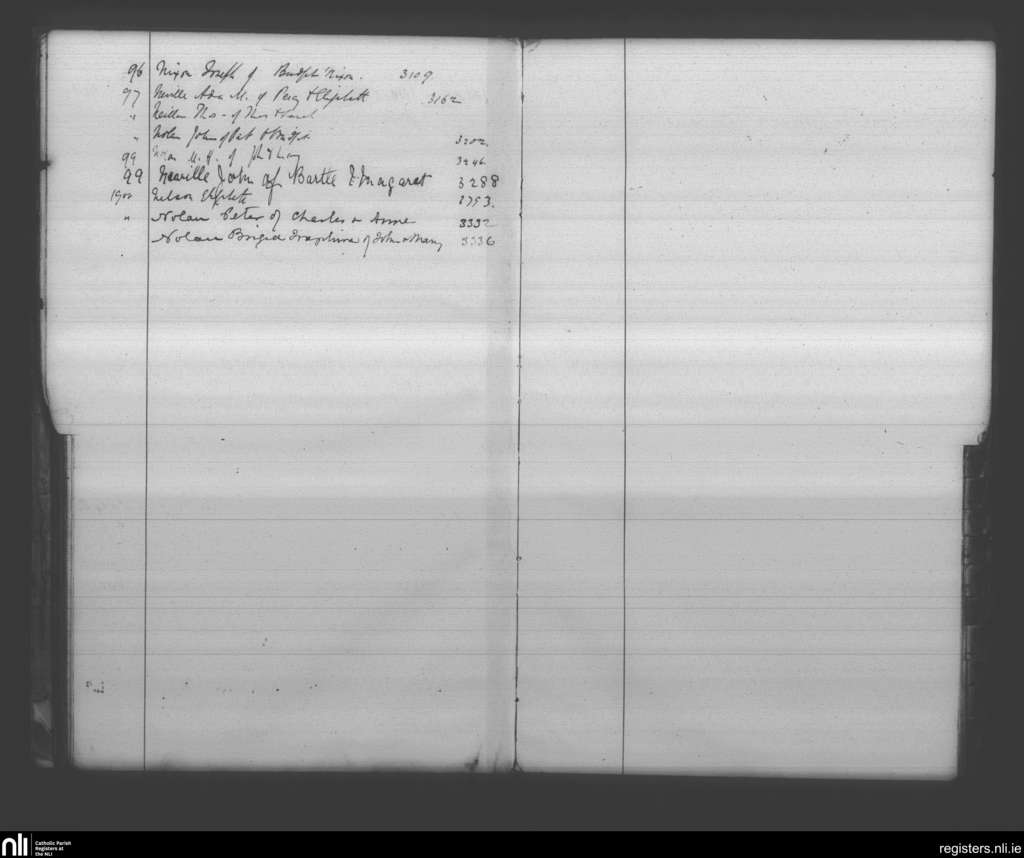 96 Nixon Joseph of Nixon. 3109
97 Neville Ada M. of Percy & Elizabeth 3162
" Neillen Thos - of Thos &
" Nolan John of Pat & 3202.
99 M. of 3246
99 Neaville John of Bartle & Margaret 3288
1900 Nelson Elizabeth 1753.
" Nolan Peter of Charles & Anne 3332
Nolan Brigid of John & Mary 3336
nli
Catholic Parish
Registers at
the NLI
registers.nli.ie